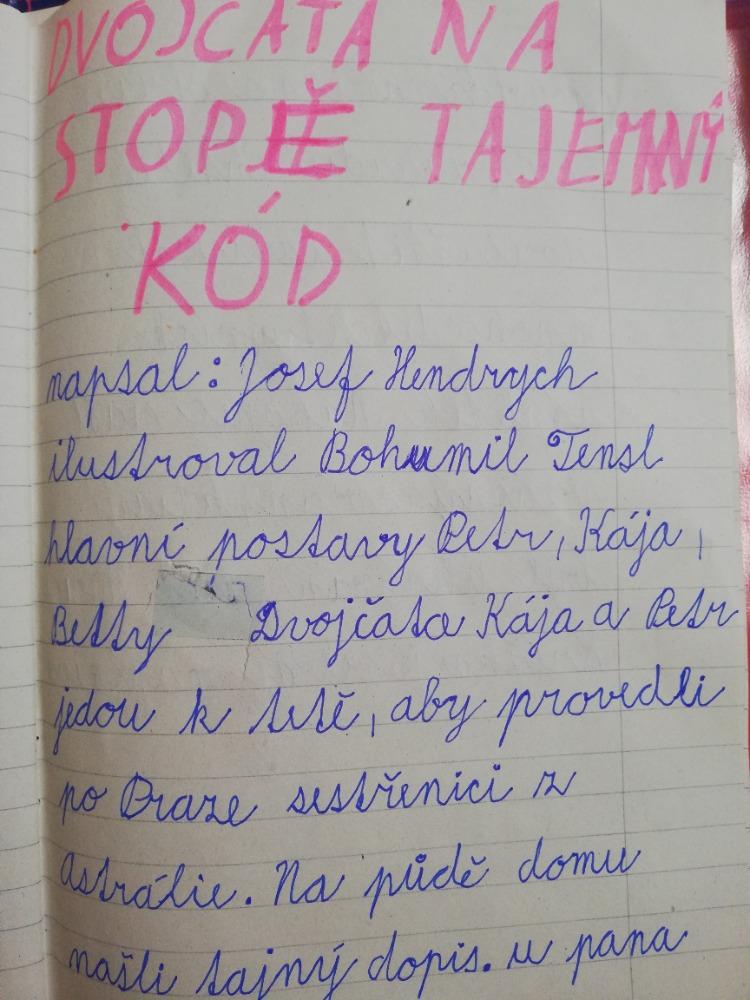 DVOJČATA NA
STOPĚ TAJEMNÝ
KÓD
napsal: Josef Hendrych
ilustroval Bohumil Tensl
hlavní postavy Petr, Kája,
Betty Dvojčata Kája a Petr
jedou k tetě, aby provedli
po Praze sestřenici z
Astrálie. Na půdě domu
našli tajný dopis. u pana